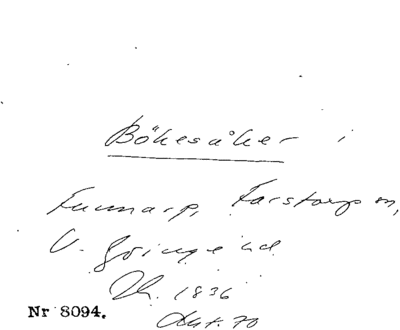 Bökesåker i
Funnarp, Farstorps sn,
V. Göinge hd
Lh. 1836
Akt. 70
Nr 8094.